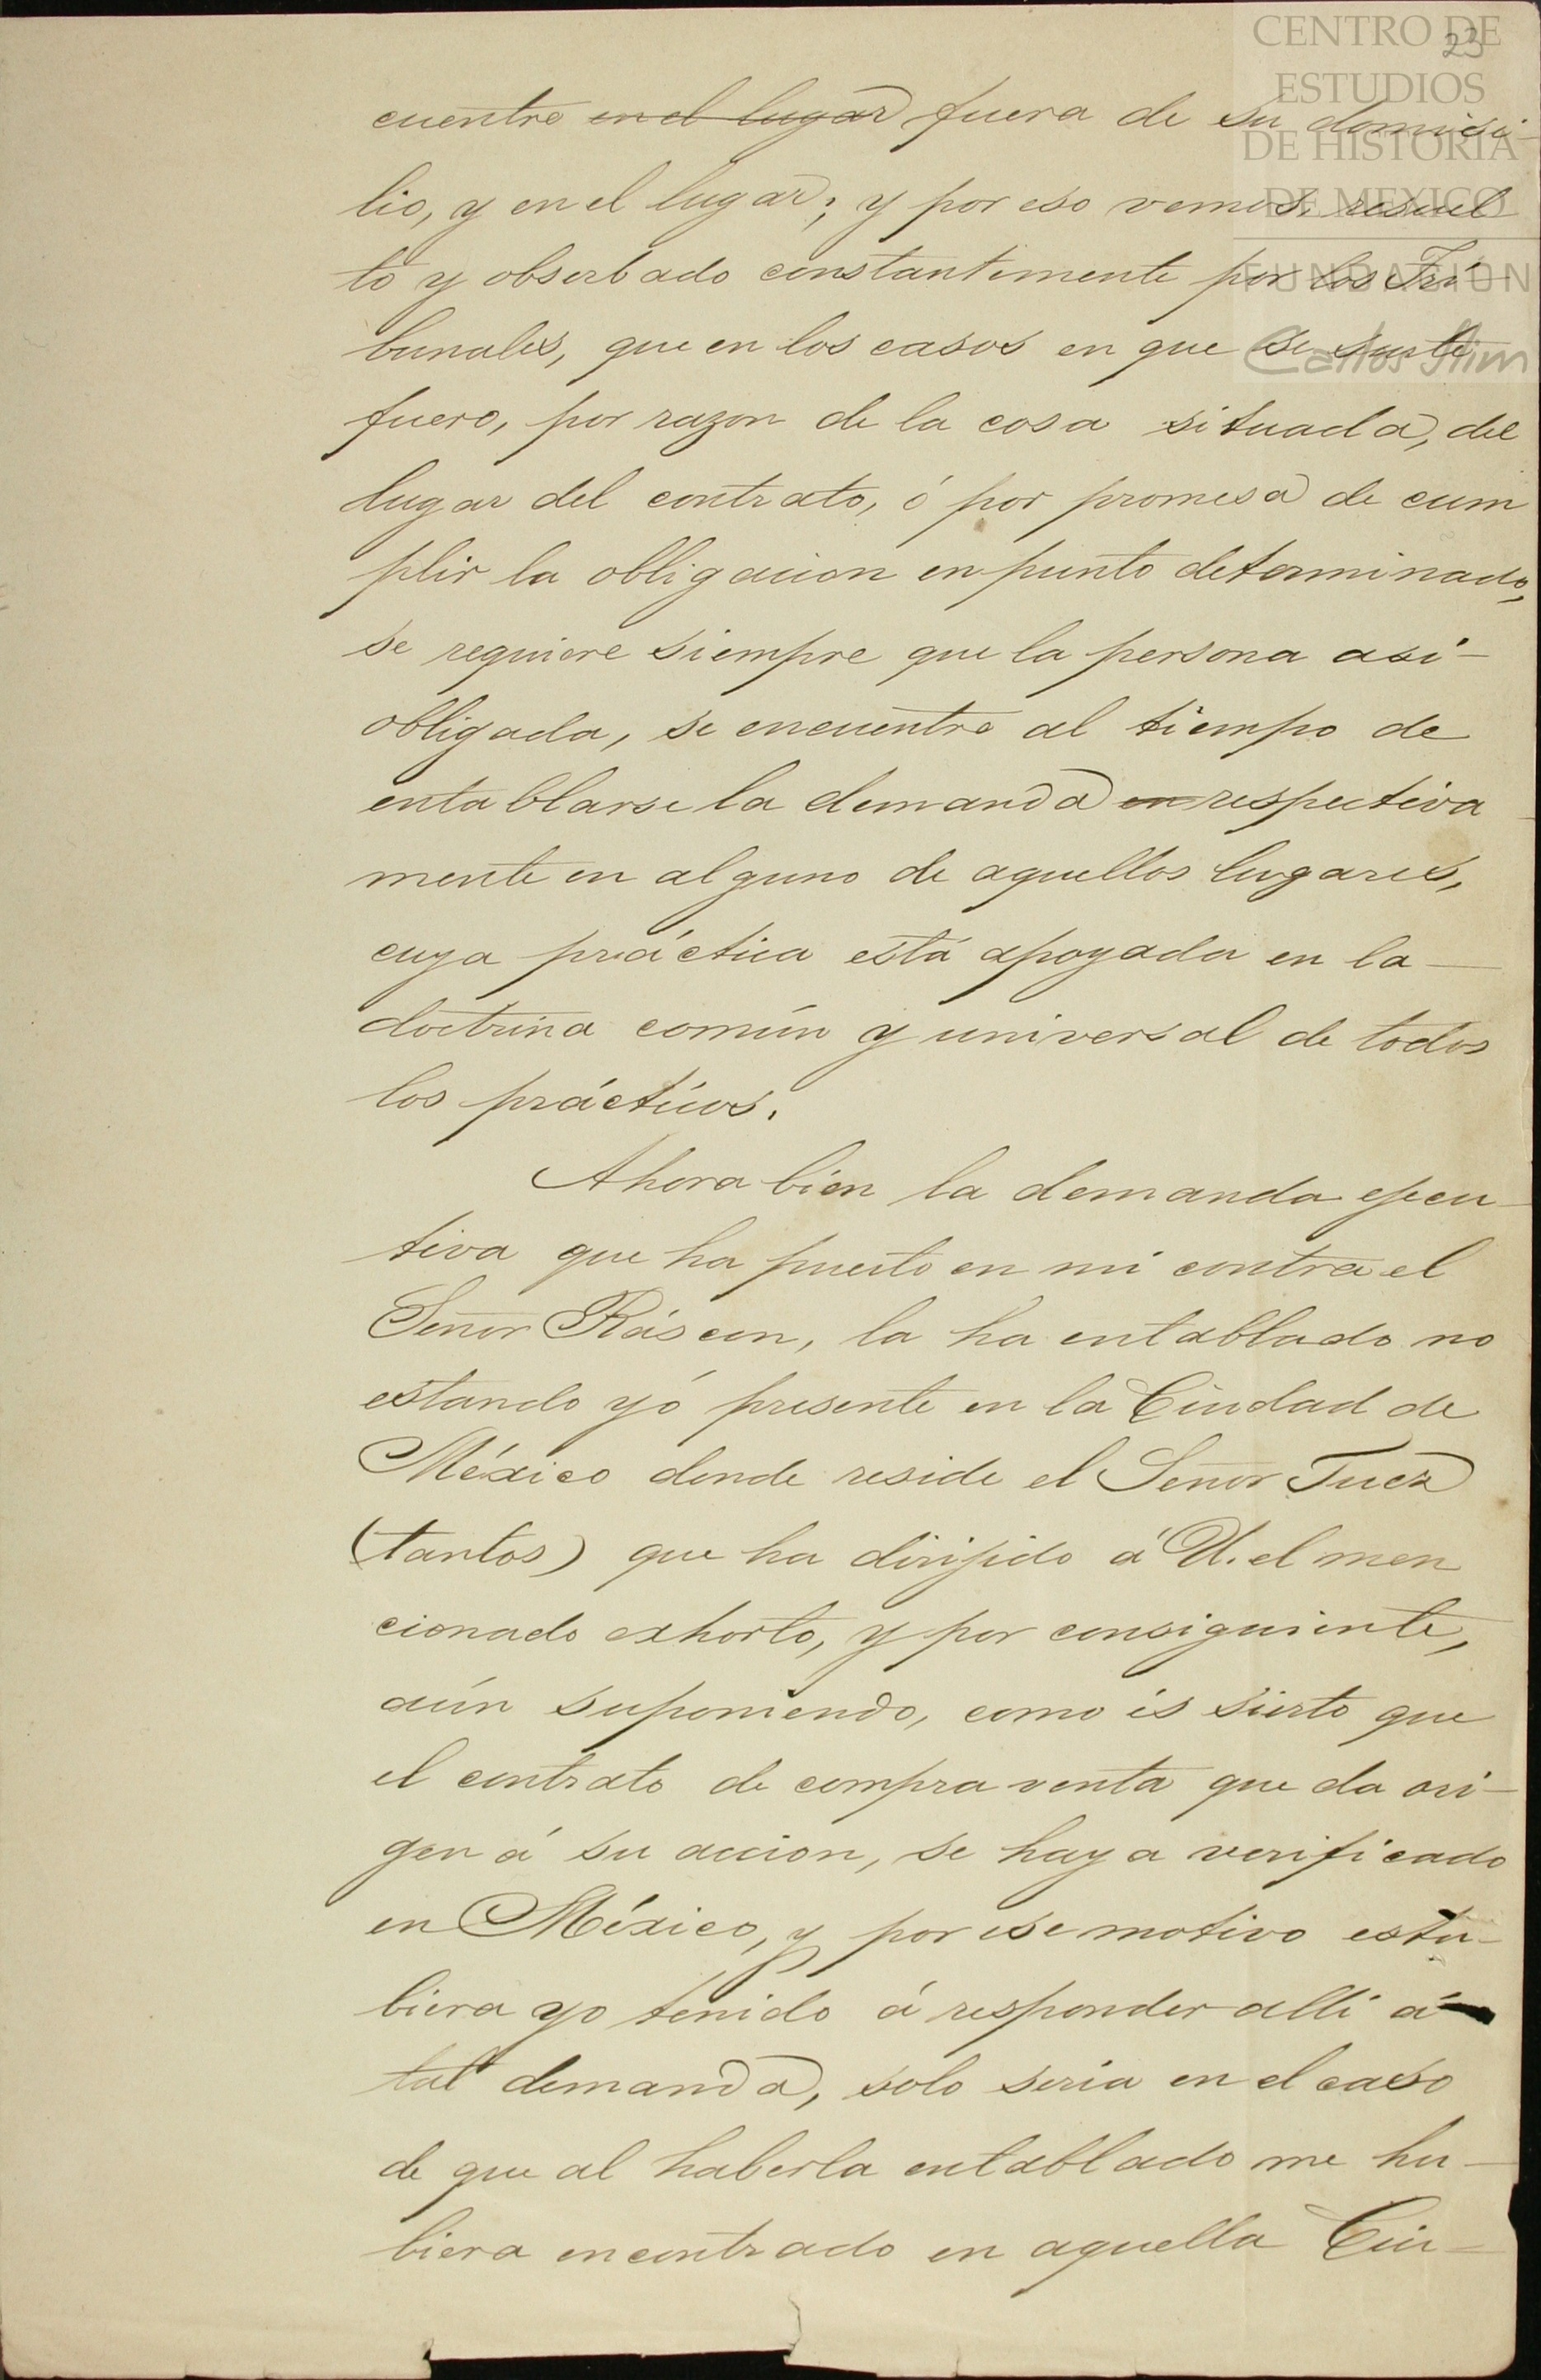 CENTRO DE
ESTUDIOS
DE HISTORIA
DE MEXICO
FUNDACION
Carlos Slim
23
cuentre en el lugar fuera de su domici-
lio, y en el lugar; y por eso vemos resuel
to y obserbado constantemente por los Tri-
bunales, que en los casos en que se surte
fuero, por razon de la cosa situada, del
lugar del contrato, ó por promesa de cum
plir la obligacion en punto determinado,
se requiere siempre que la persona asi-
obligada, se encuentre al tiempo de
entablarse la demanda en respectiva
mente en alguno de aquellos lugares,
cuya práctica está apoyada en la-
doctrina común y universal de todos
los prácticos.
Ahora bien la demanda ejecu-
tiva que ha puesto en mi contra el
Señor Ráscon, la ha entablado no
estando yó presente en la Ciudad de
México donde reside el Señor Juez
(tantos) que ha dirijido á U. el men
cionado exhorto, y por consiguiente,
aún suponiendo, como és sierto que
el contrato de compra venta que da ori-
gen á su accion, se haya verificado
en México, y por ese motivo estu-
biera yo tenido á responder allí á
tal demanda, solo seria en el caso
de que al haberla entablado me hu-
biera encontrado en aquella Ciu-